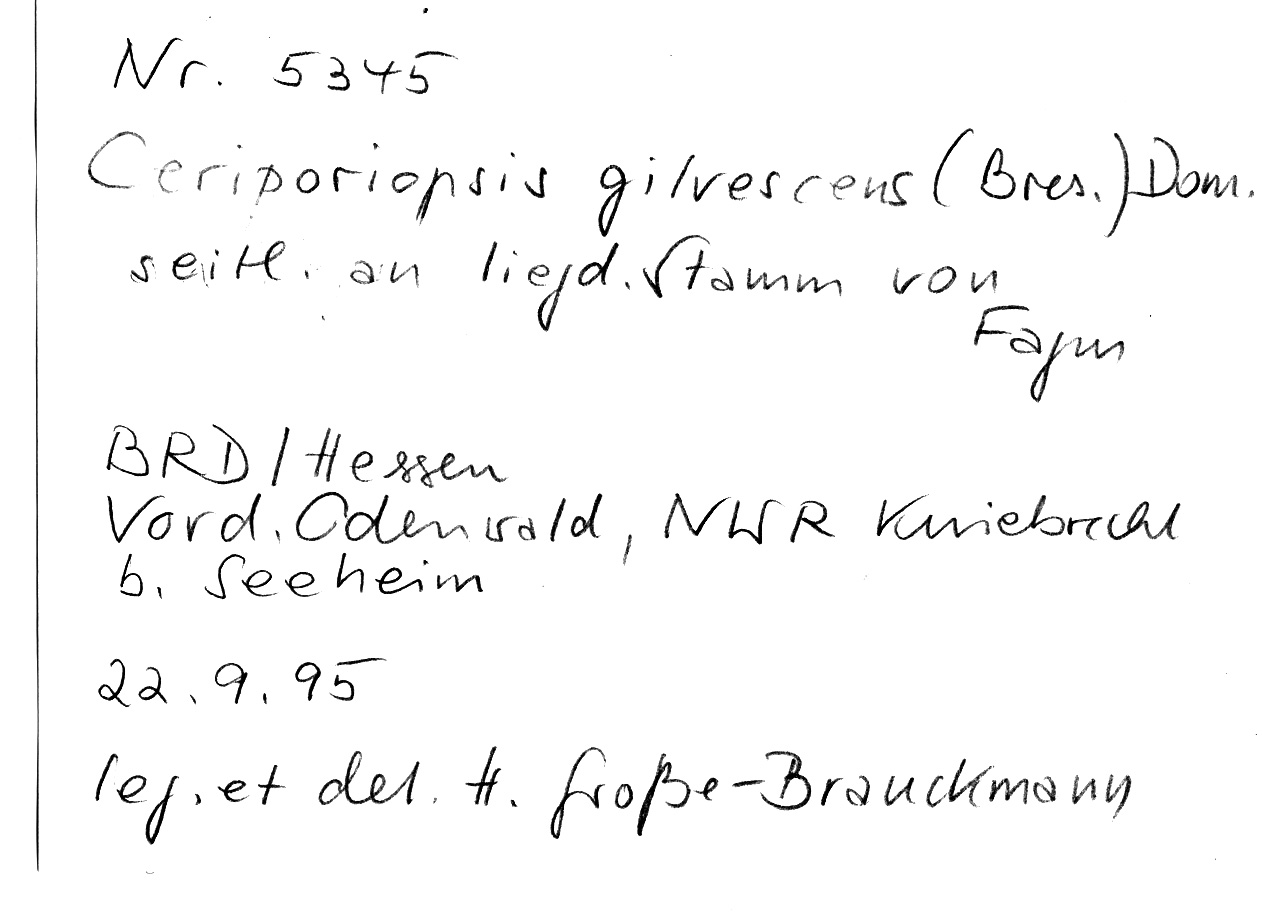 Nr. 5345
Ceriporiopsis gilvescens (Bres.) Dom.
seitl. an liegd. Stamm von
Fagus
BRD / Hessen
Vord. Odenwald, NWR Kniebrecht
b. Seeheim
22.9.95
leg. et det. H. Große-Brauckmann